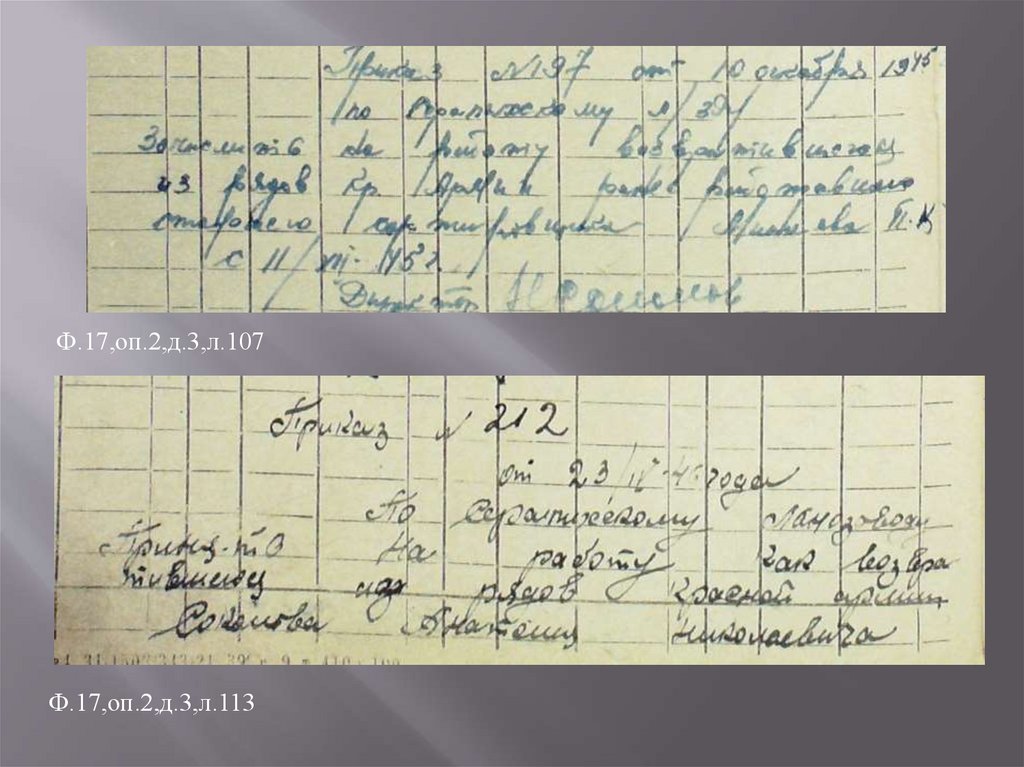 Приказ №197 от 10 декабря 1945
по Серапихскому л/зду
Зачислить на работу возвратившегося
из рядов Кр. Армии ранее работавшего
старшего
с 11/XII-45 г.
Директор
Ф.17,оп.2,д.3,л.107
Приказ № 212
от 23/ года
По Серапихскому Льнозаводу
Принять на работу как возвра
тившегося из рядов Красной армии
Соколова Анатолия Николаевича
Ф.17,оп.2,д.3,л.113